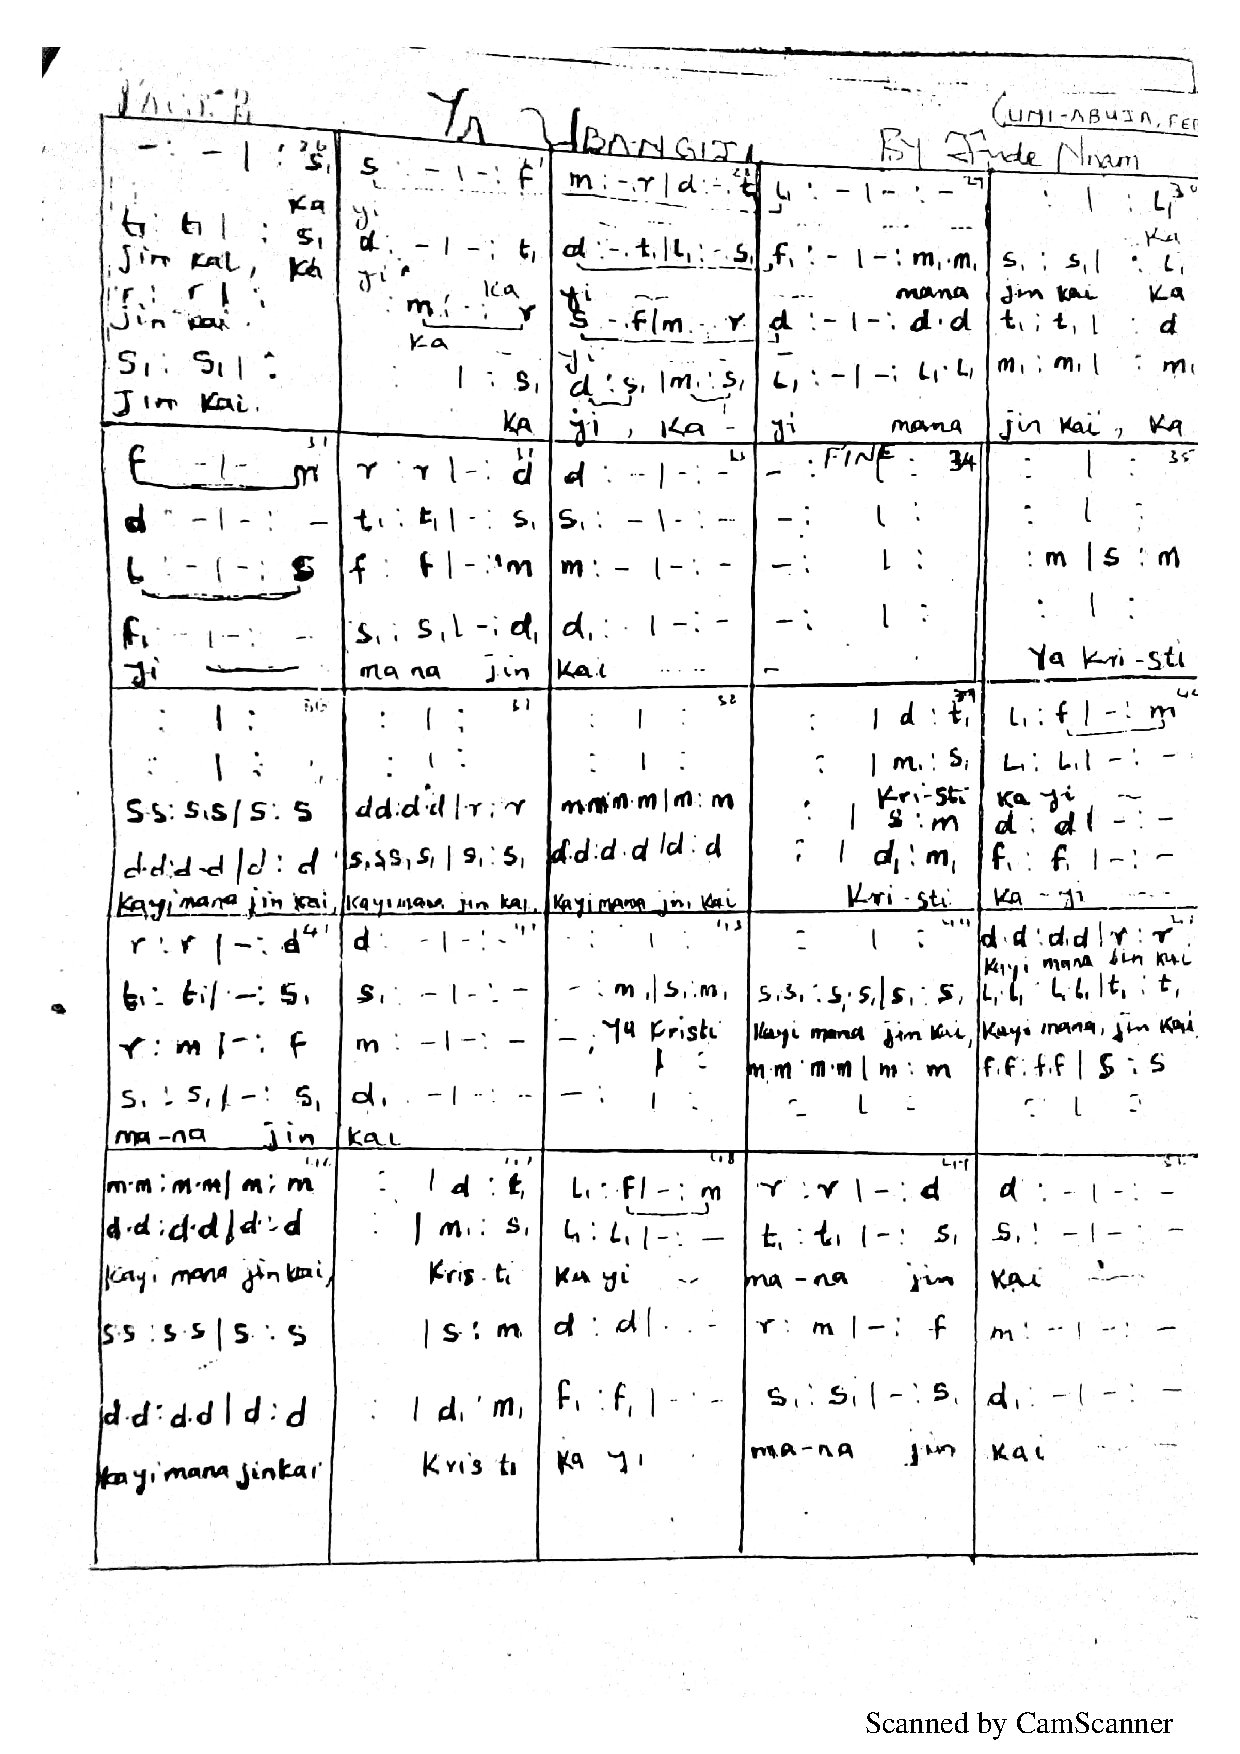 YA UBANGIJI
CUMI-ABUJA, FEB
By Jude Nnam
- : - | : s₁ | s : - | - : f | m : -.r | d : -.t₁ | l₁ : - | - : - | : | : l₁
Ka yi Ka
t₁ : t₁ | : s₁ | d : - | - : t₁ | d : -.t₁ | l₁ : -.s₁ | f₁ : - | - : m₁.m₁ | s₁ : s₁ | : l₁
jin kai, Ka ji Ka yi mana jin kai Ka
r : r | : | : m : - : r | s : -.f | m : -.r | d : - | - : d.d | t₁ : t₁ | : d
jin kai. Ka yi
s₁ : s₁ | : | : | : s₁ | d : s₁ | m₁ : s₁ | l₁ : - | - : l₁.l₁ | m₁ : m₁ | : m₁
Jin kai. Ka yi, Ka - yi mana jin kai, Ka
f : - | - : m | r : r | - : d | d : - | - : - | - : FINE : 34 | : | : 35
d : - | - : - | t₁ : t₁ | - : s₁ | s₁ : - | - : - | - : | : | : | :
l : - | - : s | f : f | - : m | m : - | - : - | - : | : | : m | s : m
f₁ : - | - : - | s₁ : s₁ | - : d₁ | d₁ : - | - : - | - : | : | : | :
yi mana jin kai - Ya Kri-sti
: | : 36 | : | : 37 | : | : 38 | : | d : t₁ 39 | l₁ : f | - : m 40
: | : | : | : | : | : | : | m₁ : s₁ | l₁ : l₁ | - : -
Kri-sti Ka yi
s.s : s.s | s : s | d.d : d.d | r : r | m.m : m.m | m : m | : | s : m | d : d | - : -
d.d : d.d | d : d | s₁.s₁ : s₁.s₁ | s₁ : s₁ | d.d : d.d | d : d | : | d₁ : m₁ | f₁ : f₁ | - : -
Kayi mana jin kai, Kayi mana jin kai, Kayi mana jin kai Kri-sti Ka-yi
r : r | - : d 41 | d : - | - : - | : | : 43 | : | : 44 | d.d : d.d | r : r
Kayi mana jin kai
t₁ : t₁ | - : s₁ | s₁ : - | - : - | - : m₁ | s₁ : m₁ | s₁.s₁ : s₁.s₁ | s₁ : s₁ | l₁.l₁ : l₁.l₁ | t₁ : t₁
Ya Kristi Kayi mana jin kai, Kayi mana, jin kai.
r : m | - : f | m : - | - : - | - : | : | m.m : m.m | m : m | f.f : f.f | s : s
s₁ : s₁ | - : s₁ | d₁ : - | - : - | - : | : | : | : | : | :
ma-na jin kai
m.m : m.m | m : m | : | d : t₁ | l₁ : f | - : m | r : r | - : d | d : - | - : -
d.d : d.d | d : d | : | m₁ : s₁ | l₁ : l₁ | - : - | t₁ : t₁ | - : s₁ | s₁ : - | - : -
Kayi mana jin kai, Kris-ti Ka yi ma-na jin kai
s.s : s.s | s : s | | s : m | d : d | - : - | r : m | - : f | m : - | - : -
d.d : d.d | d : d | : | d₁ : m₁ | f₁ : f₁ | - : - | s₁ : s₁ | - : s₁ | d₁ : - | - : -
kayi mana jinkai Kristi Ka yi ma-na jin kai
Scanned by CamScanner